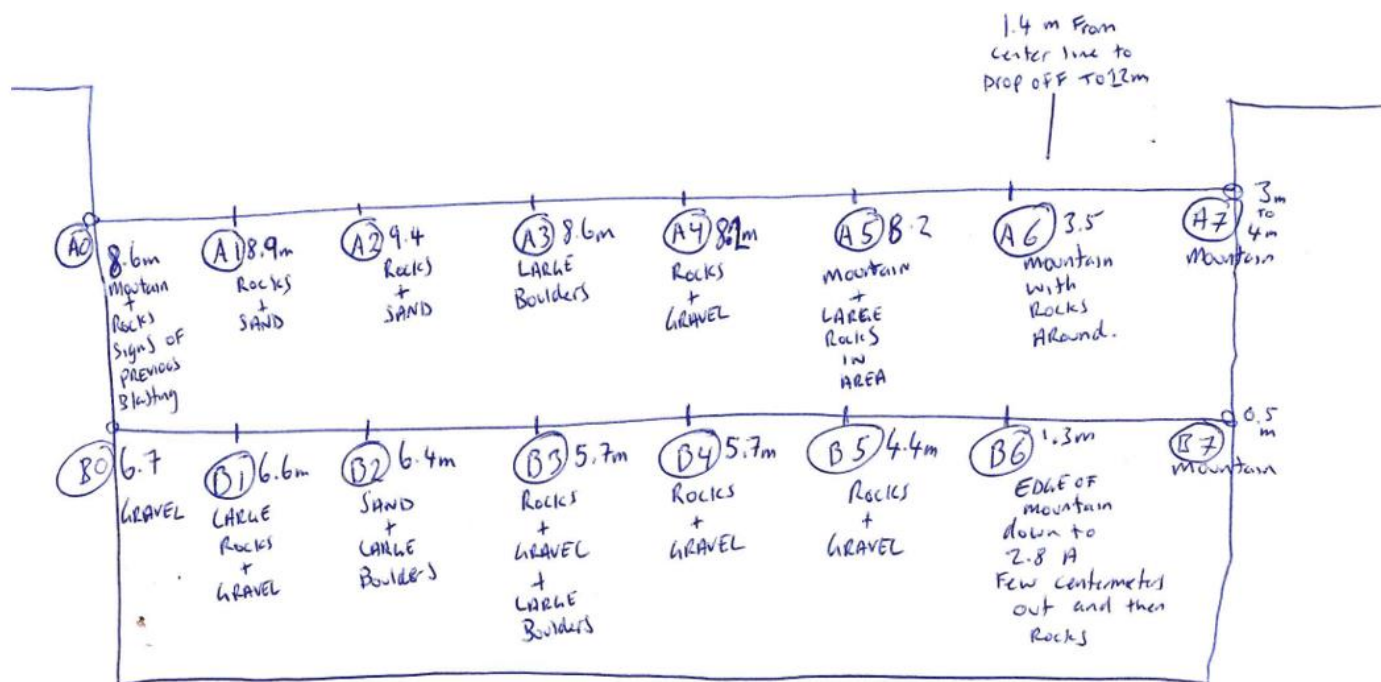 1.4 m From
center line to
Drop OFF TO 12m
A0
8.6m
Moutain
+
Rocks
Signs OF
PREVIOUS
Blasting
A1 8.9m
Rocks
+
SAND
A2 9.4
Rocks
+
SAND
A3 8.6m
LARGE
Boulders
A4 8.2m
Rocks
+
GRAVEL
A5 8.2
Mountain
+
LARGE
Rocks
IN
AREA
A6 3.5
Mountain
with
Rocks
ARound.
A7
3m
TO
4m
Mountain
B0 6.7
GRAVEL
B1 6.6m
LARGE
Rocks
+
GRAVEL
B2 6.4m
SAND
+
LARGE
Boulders
B3 5.7m
Rocks
+
GRAVEL
+
LARGE
Boulders
B4 5.7m
Rocks
+
GRAVEL
B5 4.4m
Rocks
+
GRAVEL
B6 1.3m
EDGE OF
Mountain
down to
2.8 A
Few centermeters
out and then
Rocks
B7
0.5
m
Mountain